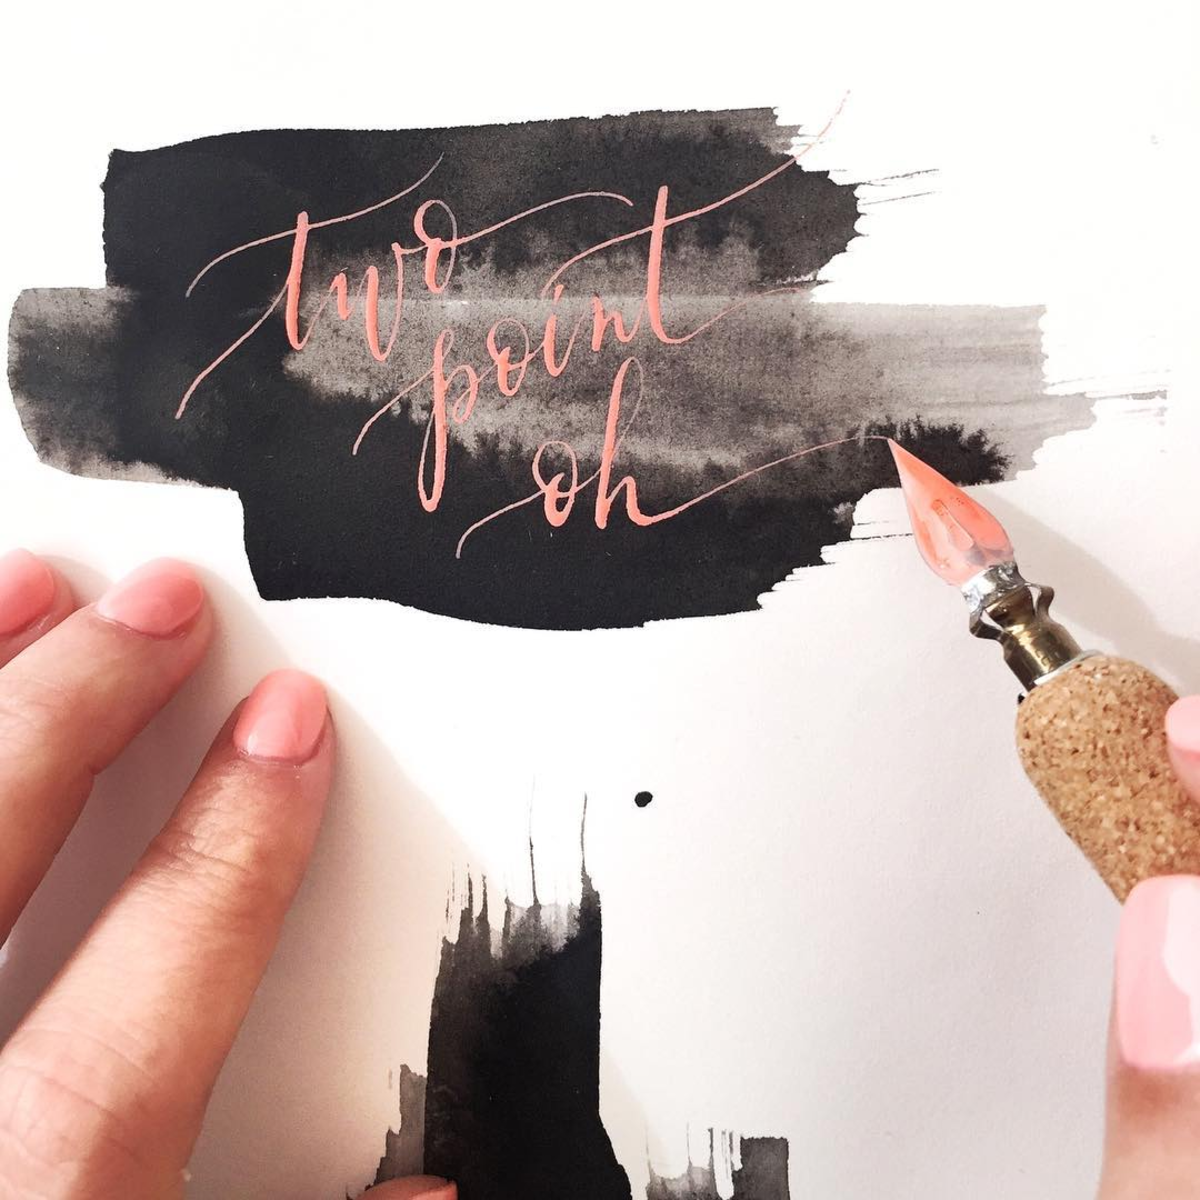 two
point
oh